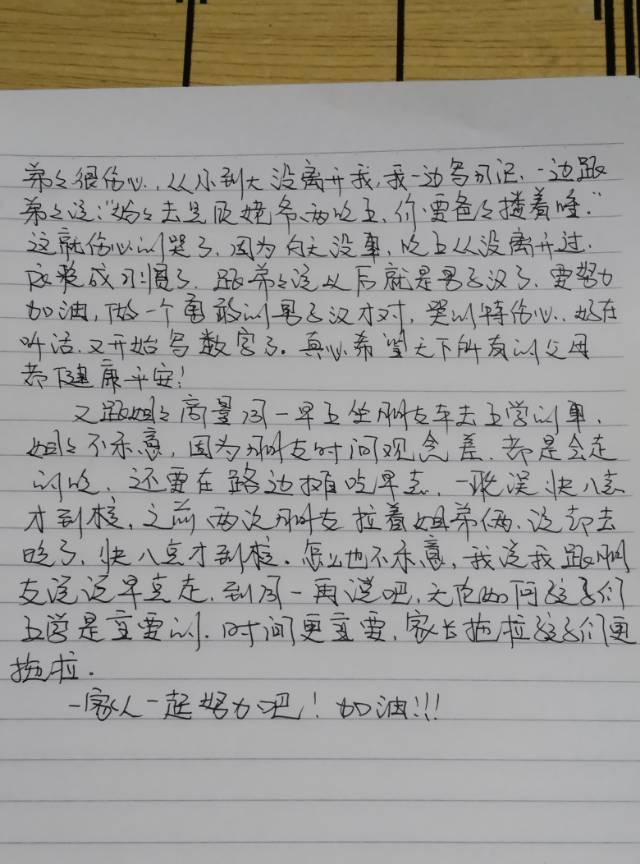 弟弟很伤心,从小到大没离开我,我一边写日记,一边跟
弟弟说:"妈妈去照顾姥爷两晚上,你要爸爸搂着睡。"
这就伤心的哭了,因为白天没事,晚上从没离开过,
成习惯了,跟弟弟说以后就是男子汉了,要努力
加油,做一个勇敢的男子汉才对,哭的特伤心,好在
听话,又开始写数字了。真心希望天下所有的父母
都健康平安!
又跟姐姐商量周一早上坐朋友车去上学的事,
姐姐不乐意,因为朋友时间观念差,都是会走
的晚,还要在路边摊吃早点,一耽误快八点
才到校,之前两次朋友拉着姐弟俩,说都去
晚了,快八点才到校。怎么也不乐意,我说我跟朋
友说说早点走,到周一再说吧,无论如何孩子们
上学是重要的,时间更重要,家长拖拉孩子们更
拖拉。
一家人一起努力吧!加油!!!